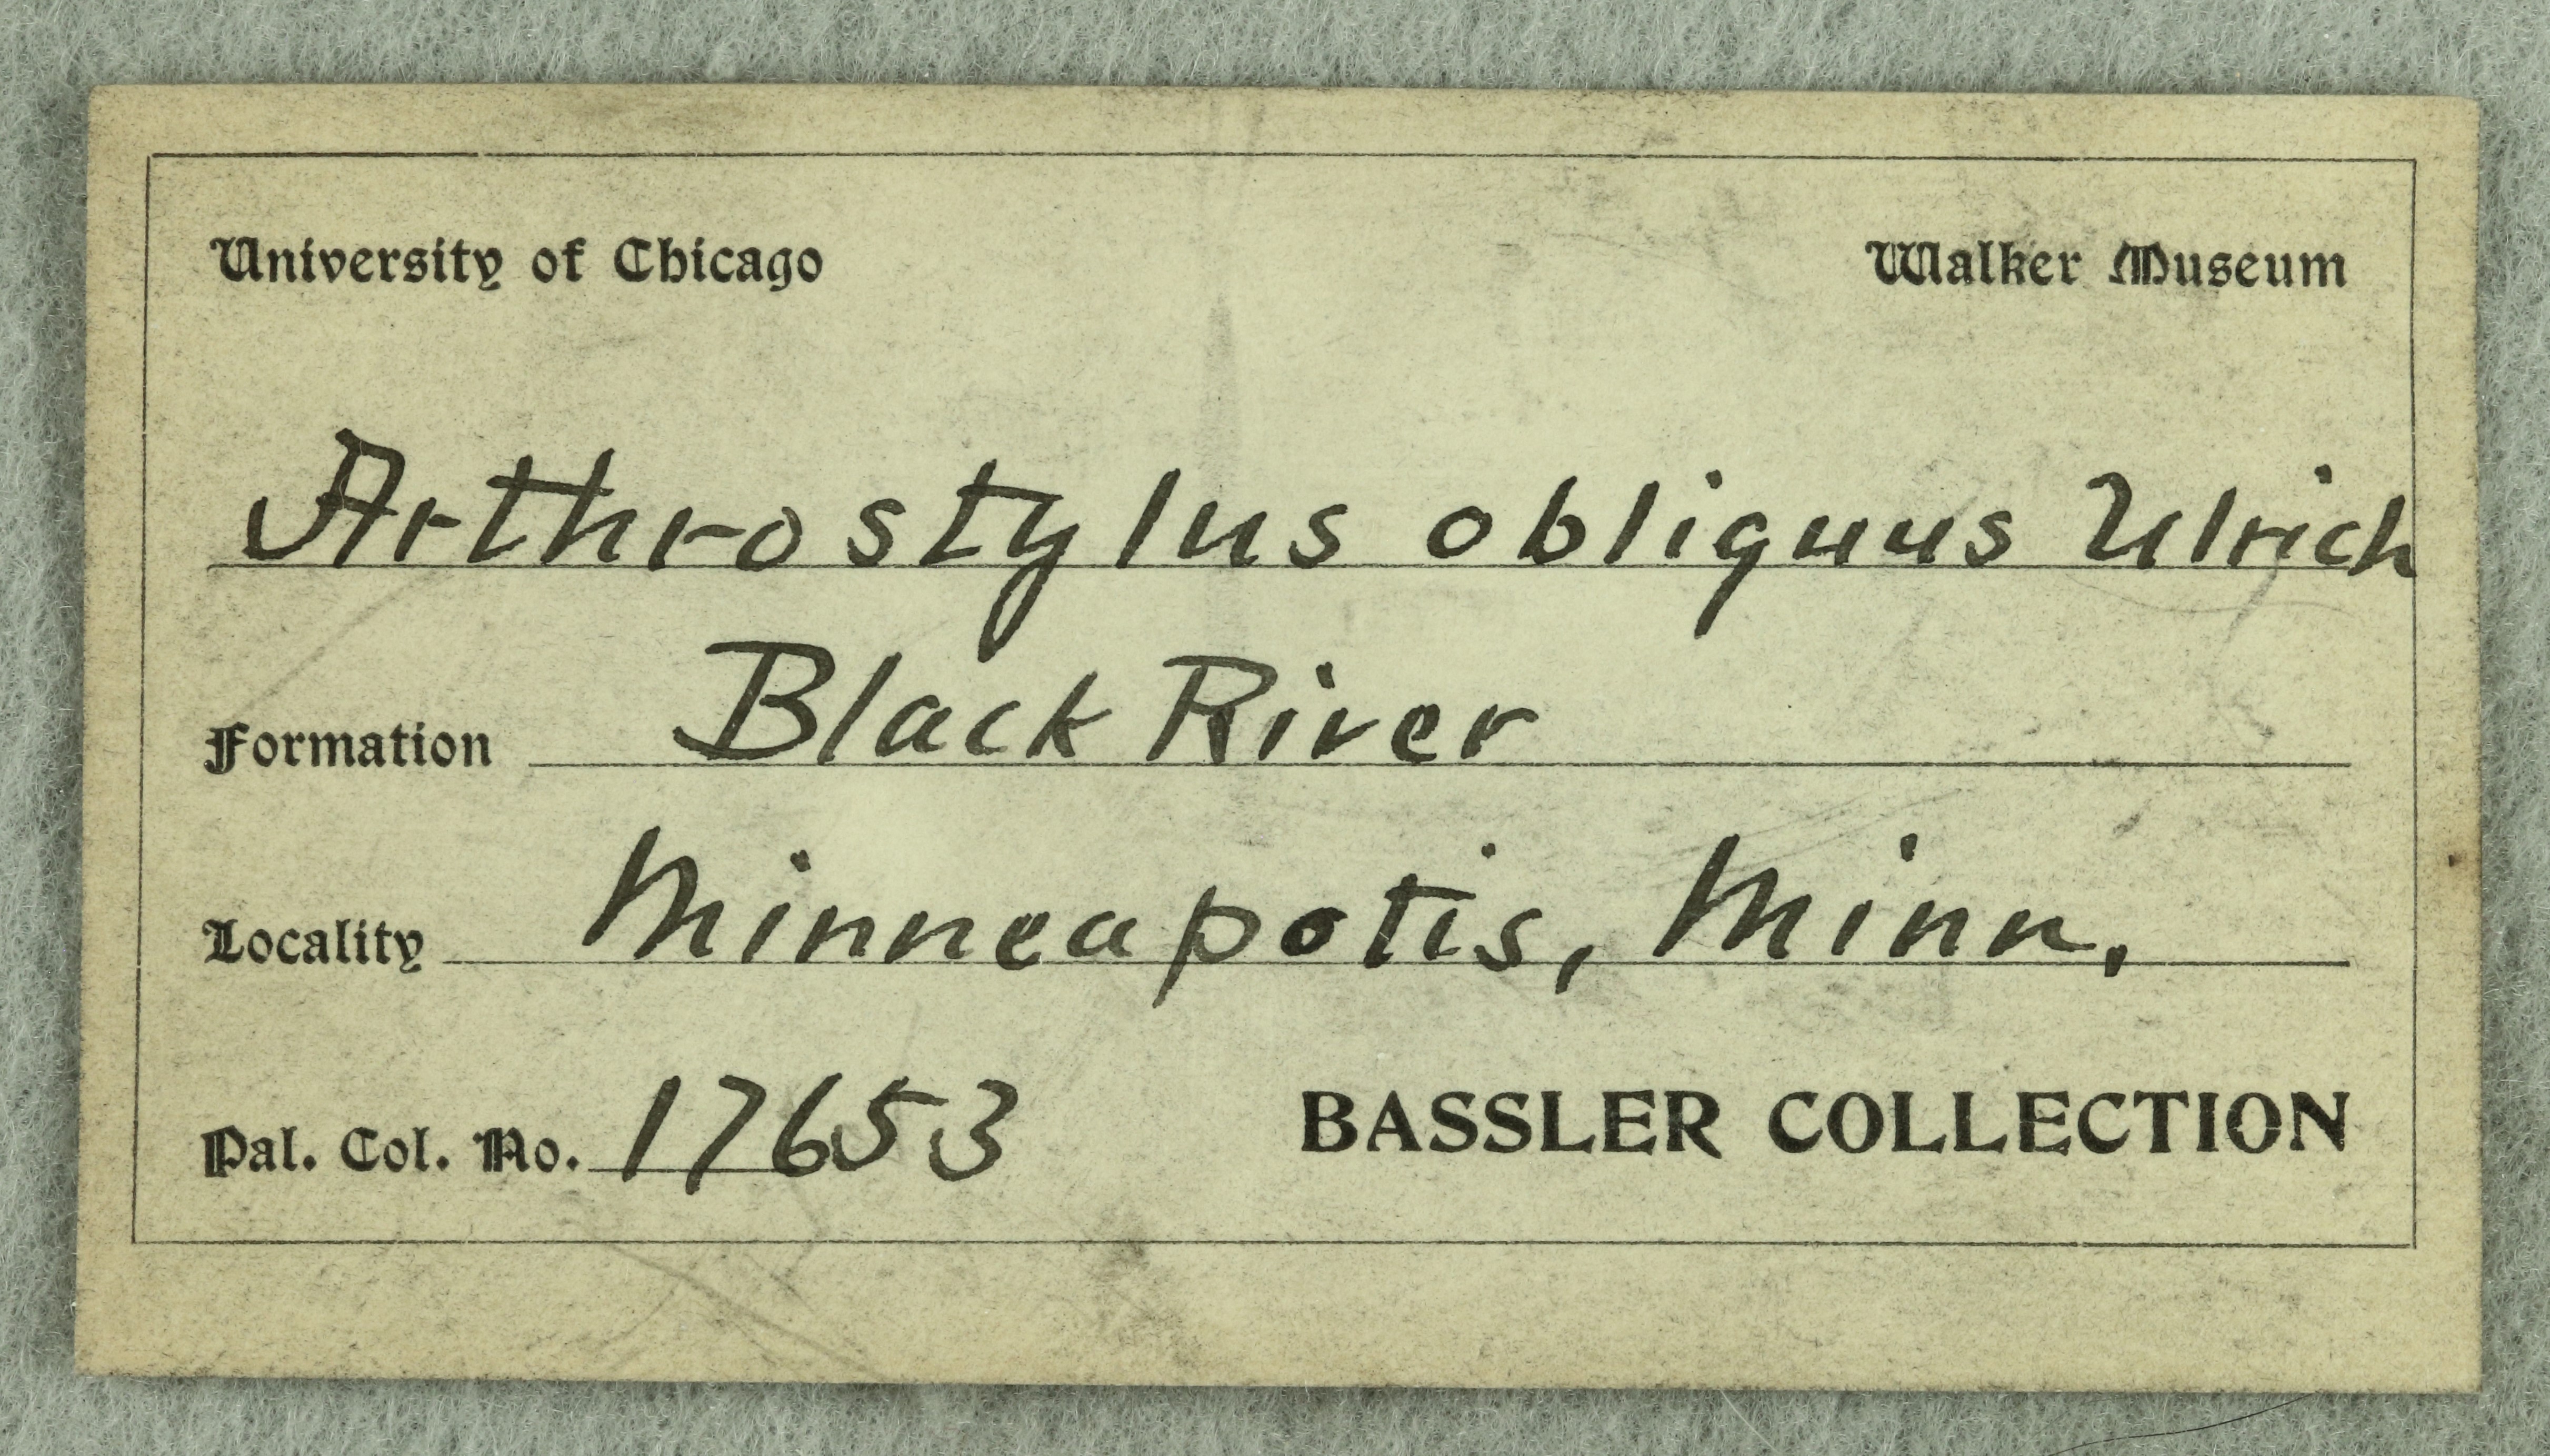 University of Chicago Walker Museum
Arthrostylus obliquus Ulrich
Formation Black River
Locality Minneapotis, Minn.
Pal. Col. No. 17653 BASSLER COLLECTION